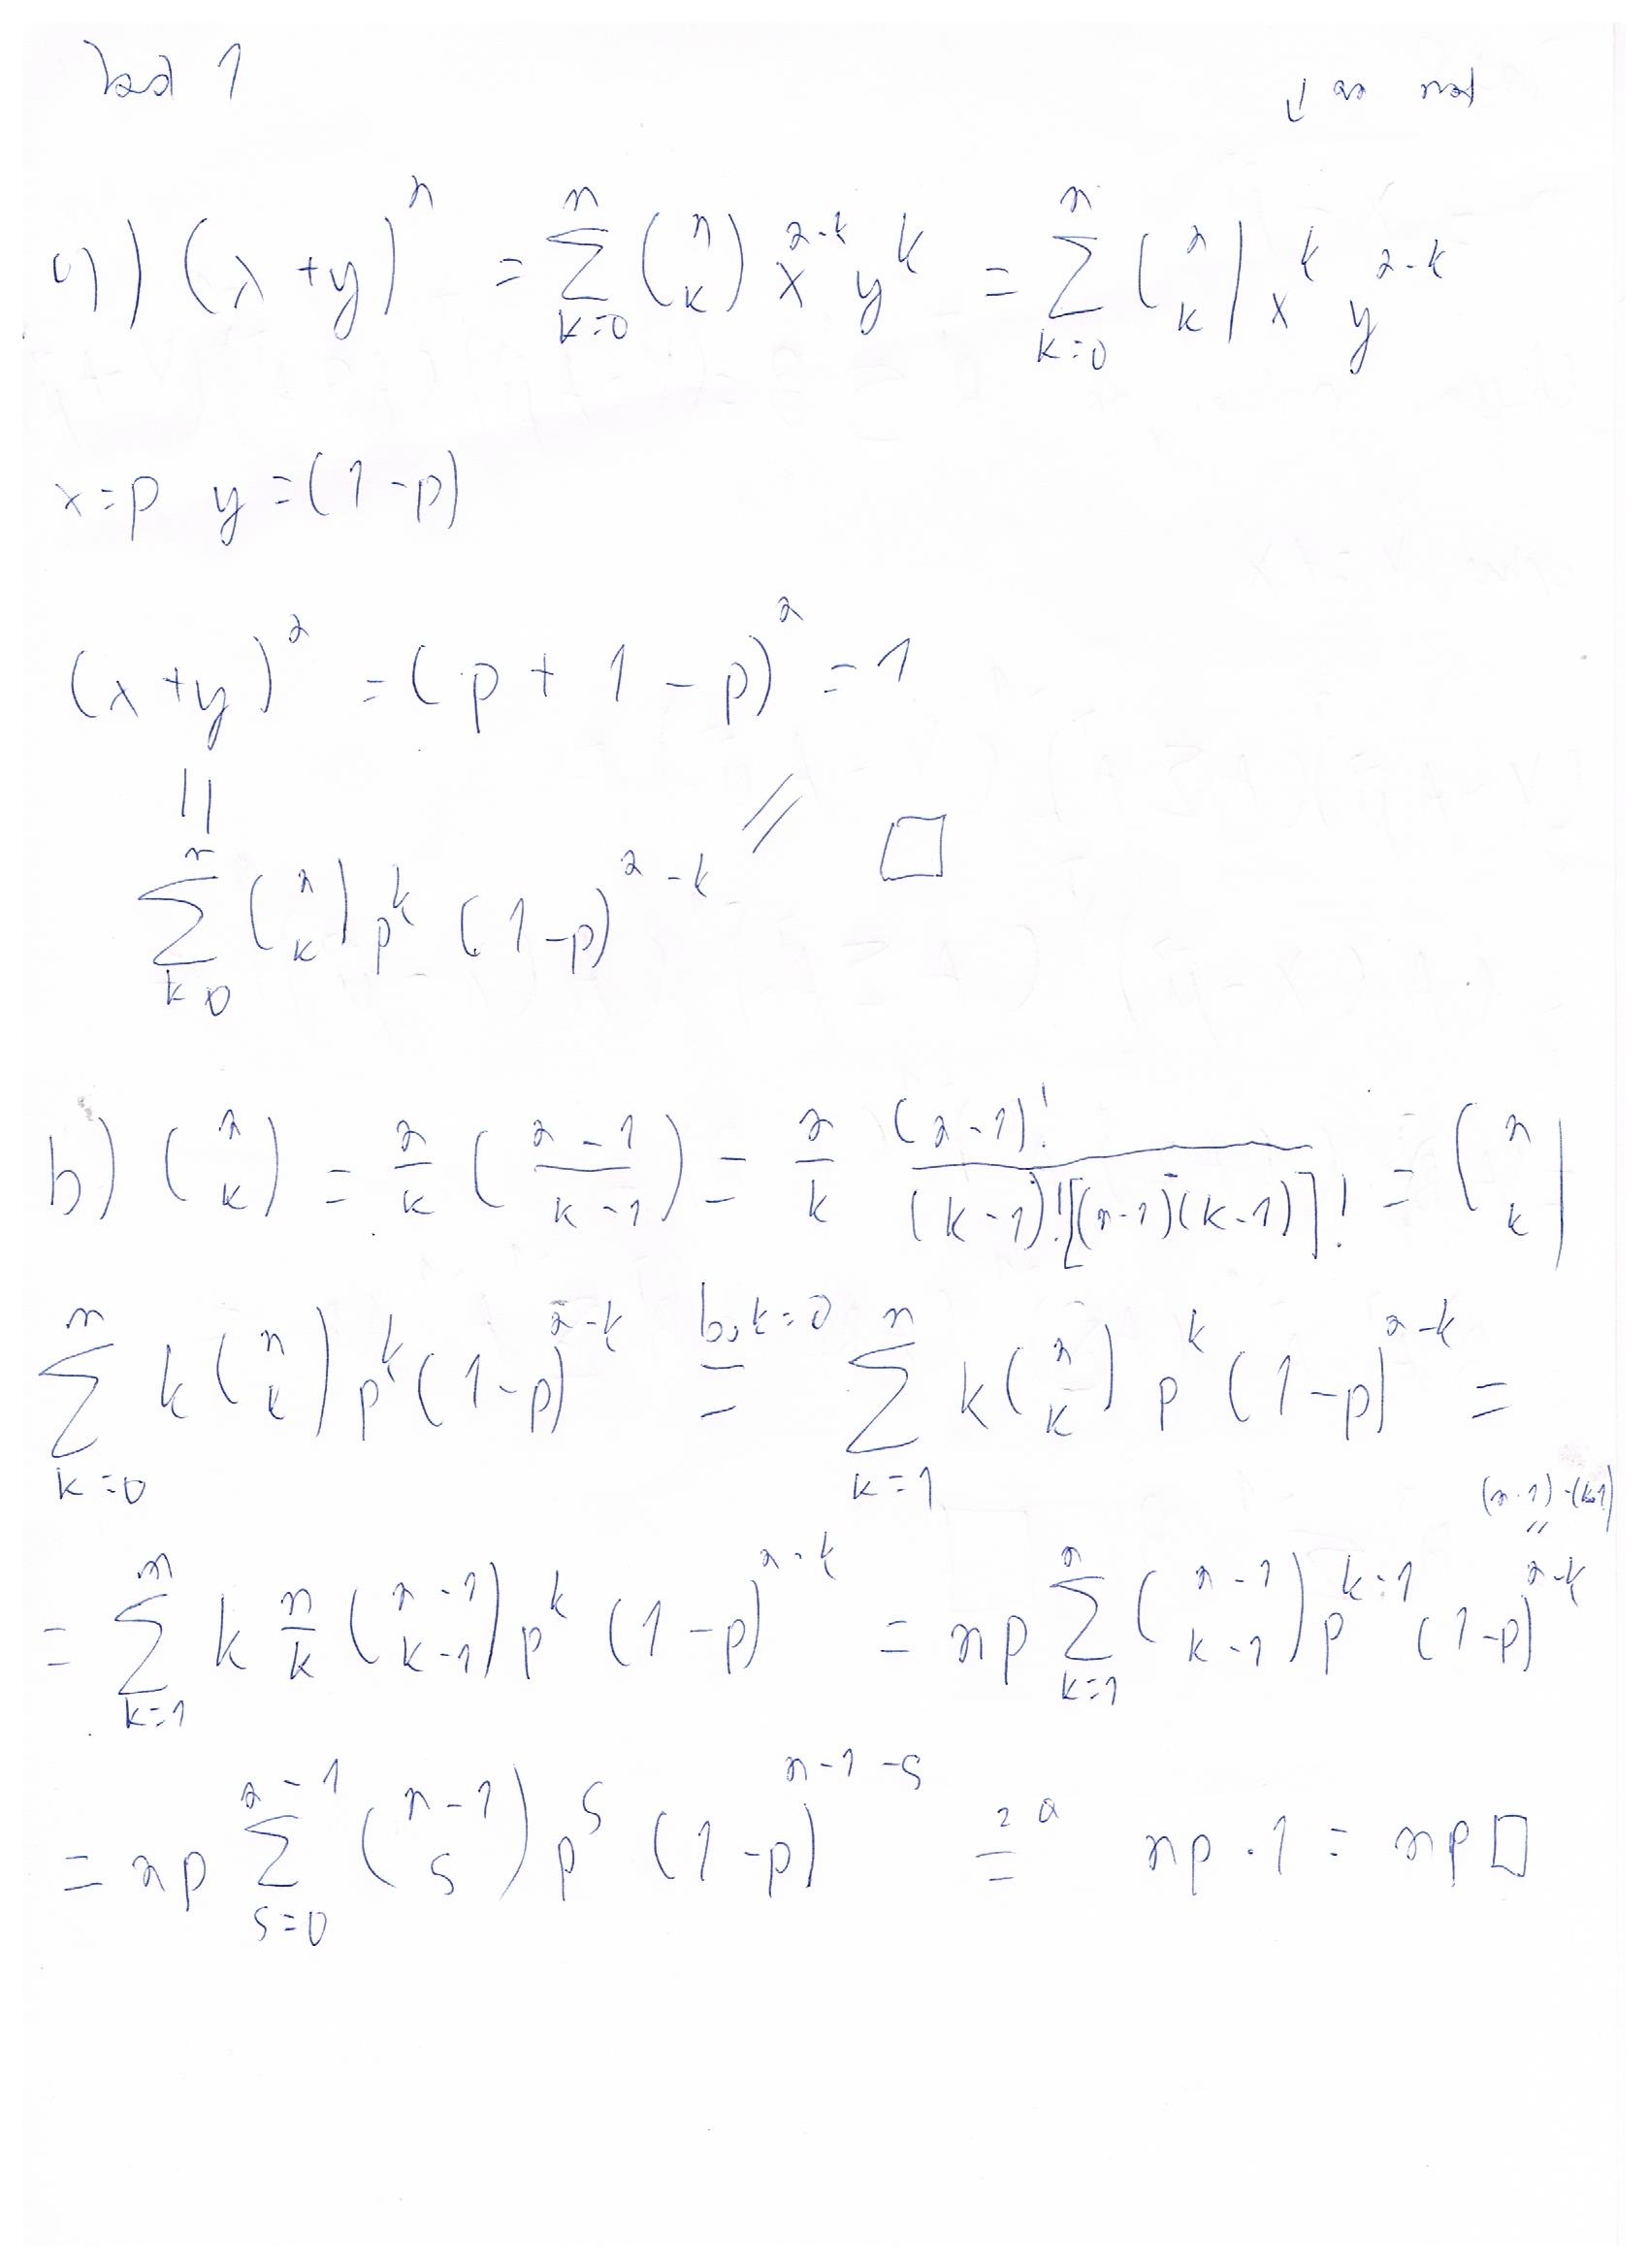 1
a) (x + y)^n = \sum_{k=0}^{n} \binom{n}{k} x^{n-k} y^k = \sum_{k=0}^{n} \binom{n}{k} x^k y^{n-k}
x = p y = (1 - p)
(x + y)^n = (p + 1 - p)^n = 1
|| // □
\sum_{k 0}^{n} \binom{n}{k} p^k (1 - p)^{n-k}
b) \binom{n}{k} = \frac{n}{k} (\frac{n-1}{k-1}) = \frac{n}{k} \frac{(n-1)!}{(k-1)! [(n-1)-(k-1)]!} = \binom{n}{k}
\sum_{k=0}^{n} k \binom{n}{k} p^k (1-p)^{n-k} \overset{bo k=0}{=} \sum_{k=1}^{n} k \binom{n}{k} p^k (1-p)^{n-k} =
(n-1)-(k-1)
"
= \sum_{k=1}^{n} k \frac{n}{k} \binom{n-1}{k-1} p^k (1-p)^{n-k} = np \sum_{k=1}^{n} \binom{n-1}{k-1} p^{k-1} (1-p)^{n-k}
= np \sum_{s=0}^{n-1} \binom{n-1}{s} p^s (1-p)^{n-1-s} \overset{z a}{=} np \cdot 1 = np □